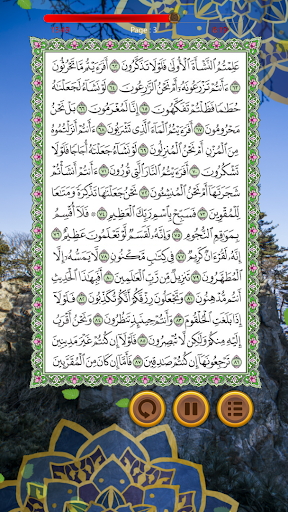 Page : 3
عَلِمْتُمُ ٱلنَّشْأَةَ ٱلْأُولَىٰ فَلَوْلَا تَذَكَّرُونَ ٦٢ أَفَرَءَيْتُم مَّا تَحْرُثُونَ
٦٣ ءَأَنتُمْ تَزْرَعُونَهُۥٓ أَمْ نَحْنُ ٱلزَّٰرِعُونَ ٦٤ لَوْ نَشَآءُ لَجَعَلْنَٰهُ
حُطَٰمًا فَظَلْتُمْ تَفَكَّهُونَ ٦٥ إِنَّا لَمُغْرَمُونَ ٦٦ بَلْ نَحْنُ
مَحْرُومُونَ ٦٧ أَفَرَءَيْتُمُ ٱلْمَآءَ ٱلَّذِى تَشْرَبُونَ ٦٨ ءَأَنتُمْ أَنزَلْتُمُوهُ
مِنَ ٱلْمُزْنِ أَمْ نَحْنُ ٱلْمُنزِلُونَ ٦٩ لَوْ نَشَآءُ جَعَلْنَٰهُ أُجَاجًا فَلَوْلَا
تَشْكُرُونَ ٧٠ أَفَرَءَيْتُمُ ٱلنَّارَ ٱلَّتِى تُورُونَ ٧١ ءَأَنتُمْ أَنشَأْتُمْ
شَجَرَتَهَآ أَمْ نَحْنُ ٱلْمُنشِـُٔونَ ٧٢ نَحْنُ جَعَلْنَٰهَا تَذْكِرَةً وَمَتَٰعًا
لِّلْمُقْوِينَ ٧٣ فَسَبِّحْ بِٱسْمِ رَبِّكَ ٱلْعَظِيمِ ٧٤ ۞ فَلَآ أُقْسِمُ
بِمَوَٰقِعِ ٱلنُّجُومِ ٧٥ وَإِنَّهُۥ لَقَسَمٌ لَّوْ تَعْلَمُونَ عَظِيمٌ ٧٦
إِنَّهُۥ لَقُرْءَانٌ كَرِيمٌ ٧٧ فِى كِتَٰبٍ مَّكْنُونٍ ٧٨ لَّا يَمَسُّهُۥٓ إِلَّا
ٱلْمُطَهَّرُونَ ٧٩ تَنزِيلٌ مِّن رَّبِّ ٱلْعَٰلَمِينَ ٨٠ أَفَبِهَٰذَا ٱلْحَدِيثِ
أَنتُم مُّدْهِنُونَ ٨١ وَتَجْعَلُونَ رِزْقَكُمْ أَنَّكُمْ تُكَذِّبُونَ ٨٢ فَلَوْلَآ
إِذَا بَلَغَتِ ٱلْحُلْقُومَ ٨٣ وَأَنتُمْ حِينَئِذٍ تَنظُرُونَ ٨٤ وَنَحْنُ أَقْرَبُ
إِلَيْهِ مِنكُمْ وَلَٰكِن لَّا تُبْصِرُونَ ٨٥ فَلَوْلَآ إِن كُنتُمْ غَيْرَ مَدِينِينَ
٨٦ تَرْجِعُونَهَآ إِن كُنتُمْ صَٰدِقِينَ ٨٧ فَأَمَّآ إِن كَانَ مِنَ ٱلْمُقَرَّبِينَ